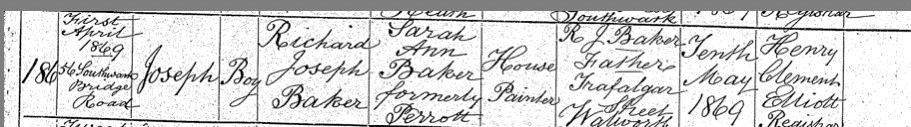 Southwark
Registrar
186
First
April
1869
56 Southwark
Bridge
Road
Joseph
Boy
Richard
Joseph
Baker
Sarah
Ann
Baker
formerly
Perrott
House
Painter
R J Baker
Father
Trafalgar
Street
Walworth
Tenth
May
1869
Henry
Clement
Elliott
Registrar